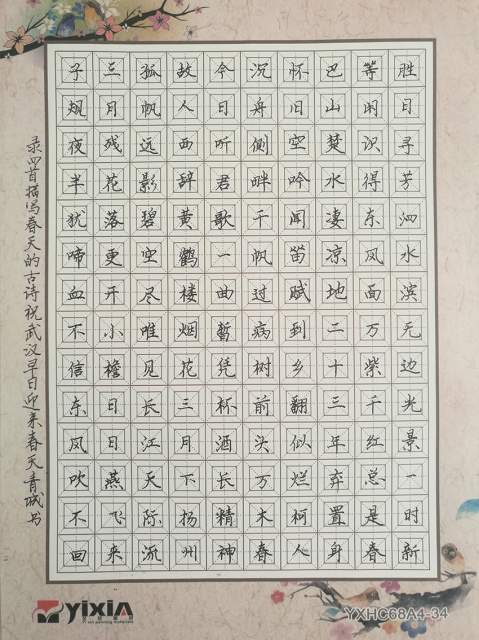 胜日寻芳泗水滨无边光景一时新
等闲识得东风面万紫千红总是春
巴山楚水凄凉地二十三年弃置身
怀旧空吟闻笛赋到乡翻似烂柯人
沉舟侧畔千帆过病树前头万木春
今日听君歌一曲暂凭杯酒长精神
故人西辞黄鹤楼烟花三月下扬州
孤帆远影碧空尽唯见长江天际流
三月残花落更开小檐日日燕飞来
子规夜半犹啼血不信东风吹不回
录四首描写春天的古诗祝武汉早日迎来春天青城书
YIXIA
YXHC68A4-34